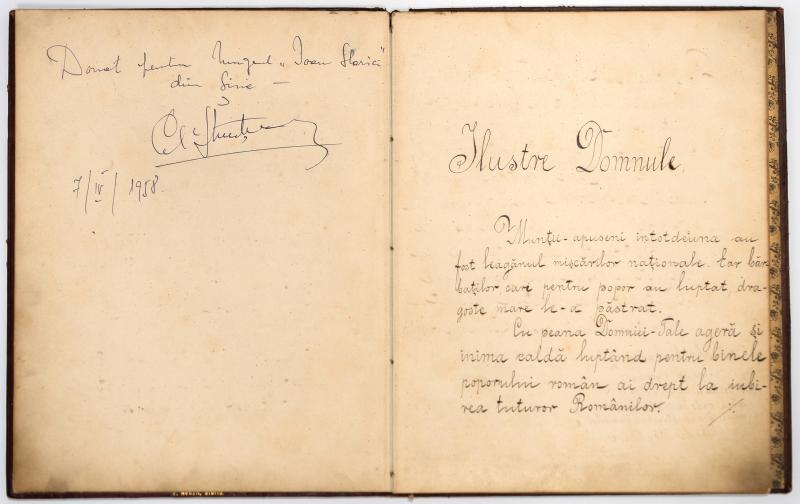 Donat pentru Muzeul „Ioan Slavici”
din Șiria —
7/IV/1958.
Ilustre Domnule,
Munții-apuseni întotdeuna au
fost leagănul mișcărilor naționale. Ear băr-
baților cari pentru popor au luptat dra-
goste mare le-a păstrat.
Cu peana Domniei-Tale ageră și
inima caldă luptând pentru binele
poporului român ai drept la iubi-
rea tuturor Românilor. ./.